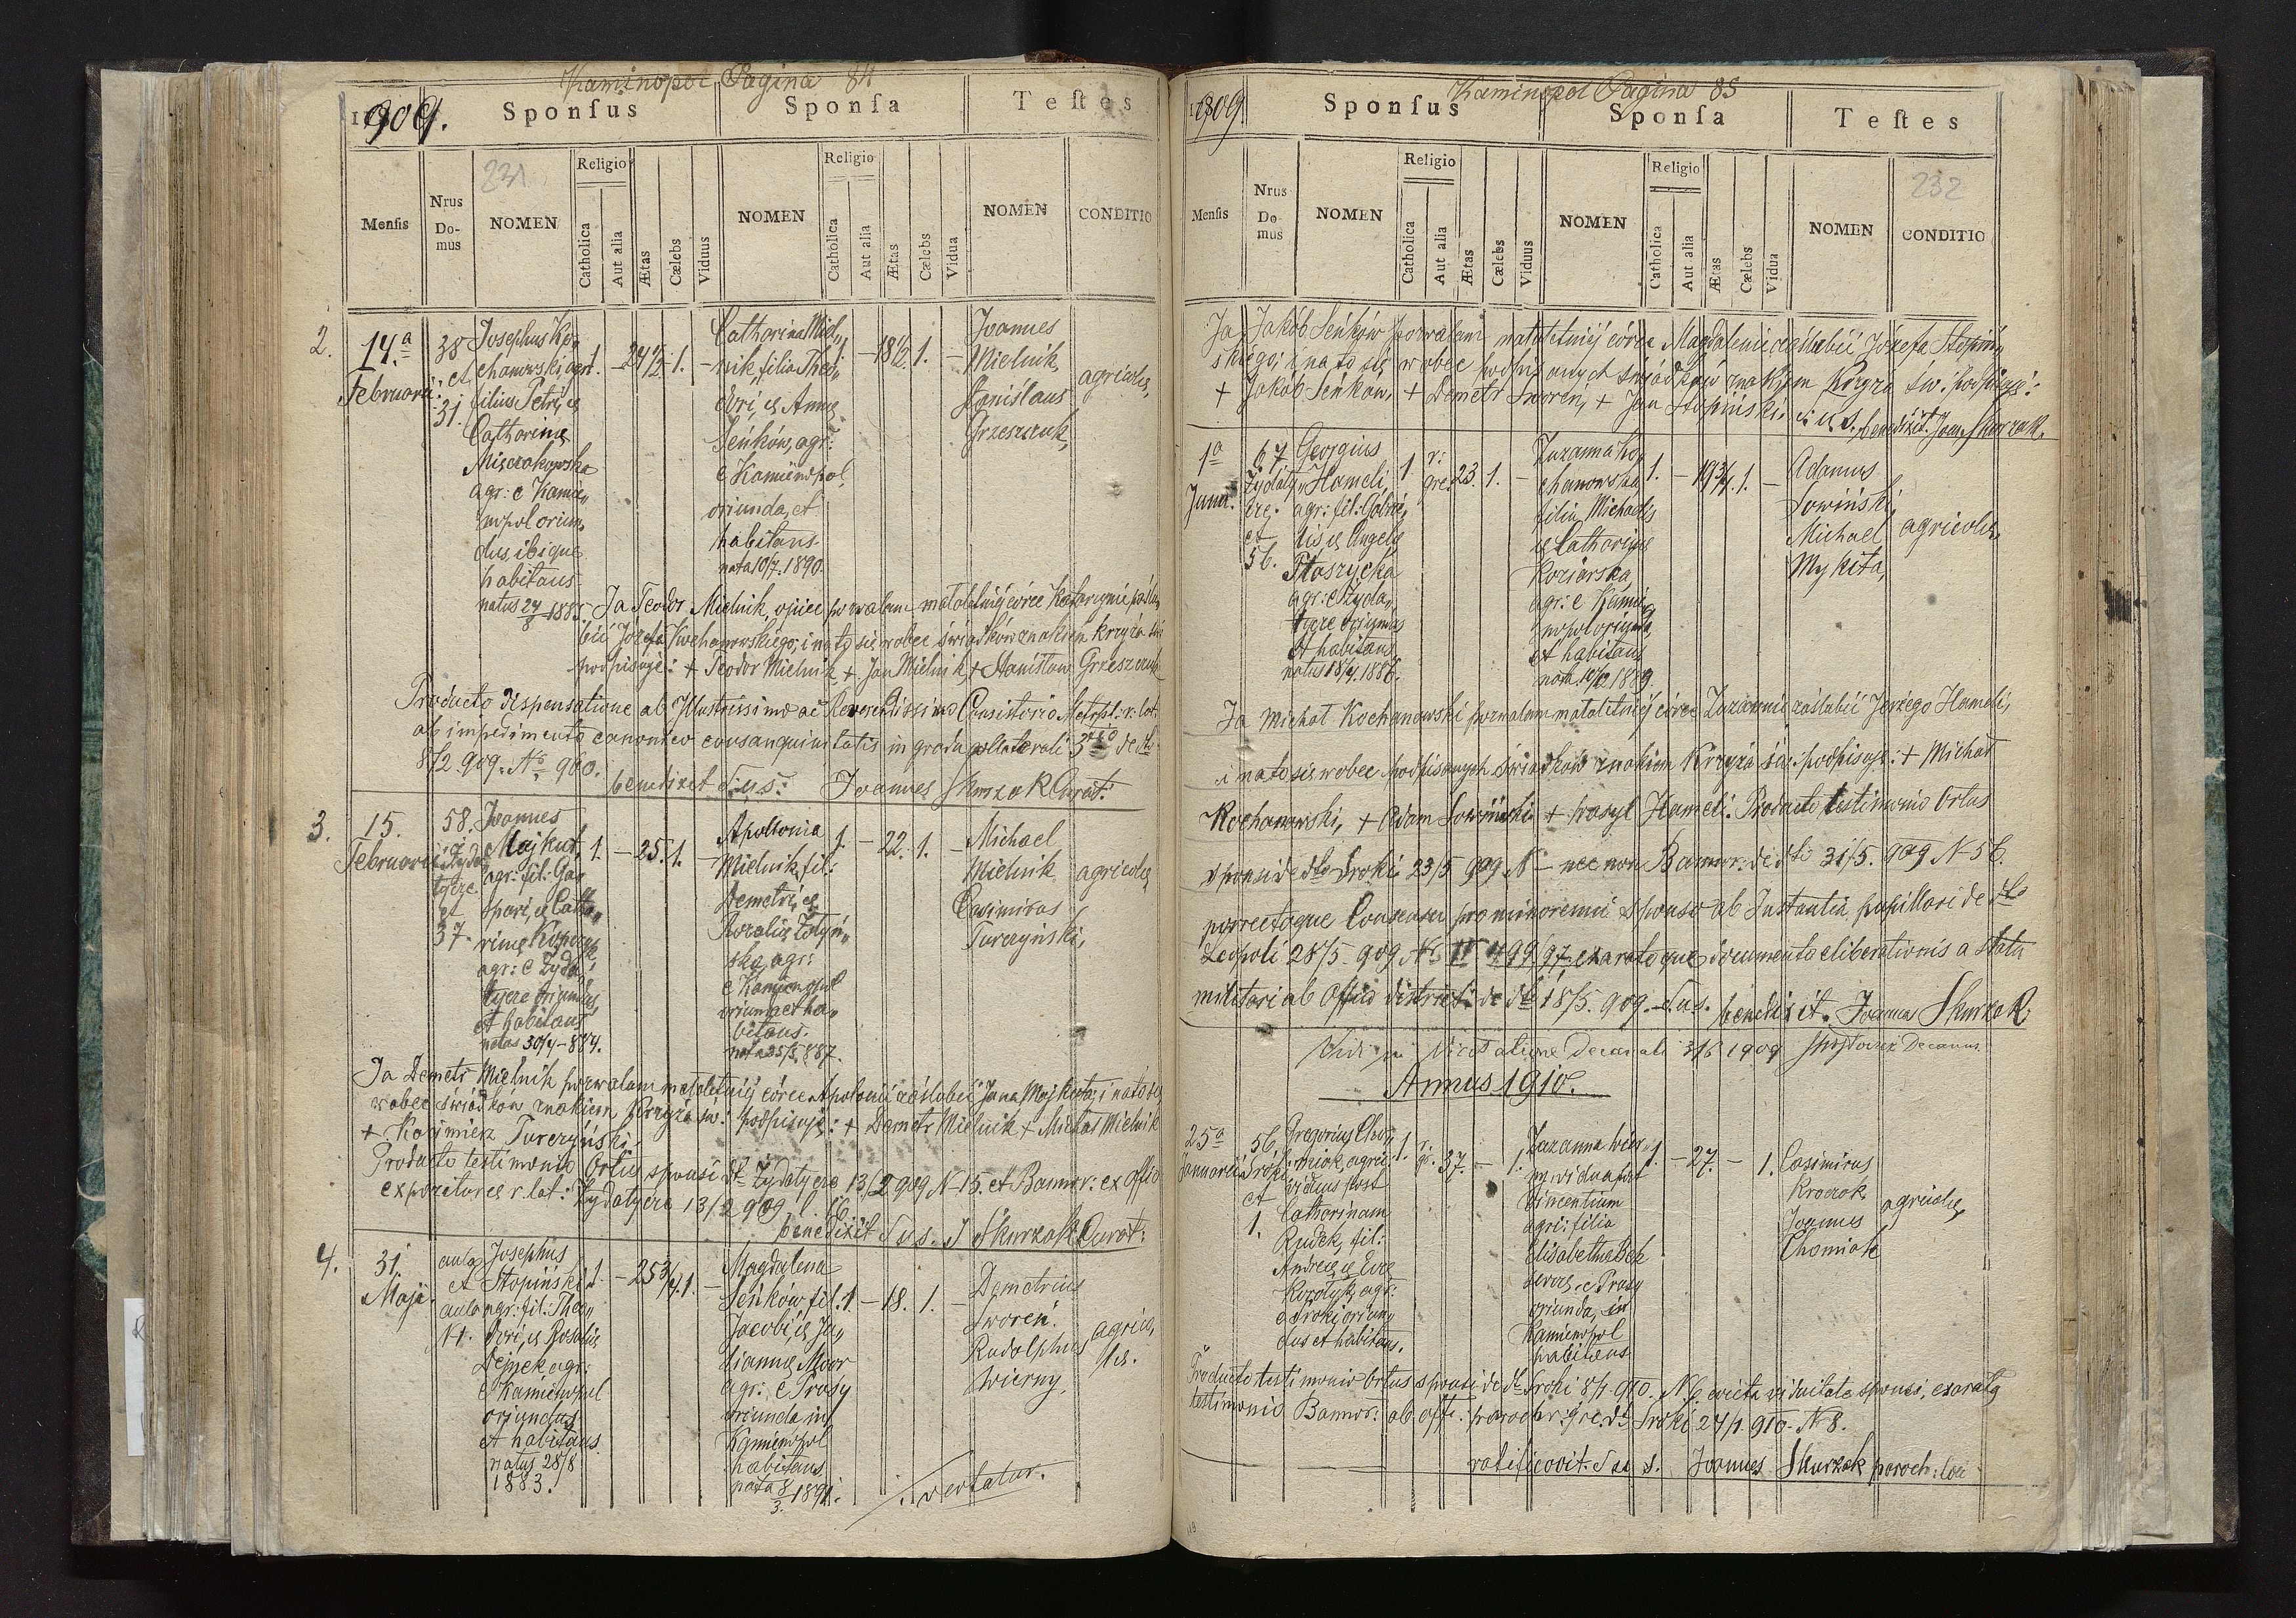 Kaminopol Pagina 84
1909.
Sponſus
Sponſa
Teſtes
231
Menſis
Nrus Do-mus
NOMEN
Religio
Catholica
Aut alia
Ætas
Cælebs
Viduus
NOMEN
Religio
Catholica
Aut alia
Ætas
Cælebs
Vidua
NOMEN
CONDITIO
2.
14.a
Februarii
38
et
31.
Josephus Ko„
chanowski, agr.
filius Petri, et
Catharinæ
Mięczakowska
agr: e Kamie„
nopol oriun„
dus ibique
habitans
1. – 24 1/2 1. –
Catharina Miel„
nik, filia Theo„
dori, et Annæ
Seńków, agr:
e Kamienopol,
oriunda, et
habitans.
nata 10/7. 1890.
1 – 18 1/2. 1. –
Joannes
Mielnik,
Stanislaus
Grzeszczuk,
agricolæ,
Ja Teodor Mielnik, ojciec pozwalam małoletniéj córce Katarzynie poślu„
bić Józefa Kochanowskiego, i na to się wobec świadków znakiem krzyża św:
podpisuję: + Teodor Mielnik + Jan Mielnik, + Stanisław Grzeszczuk
Producto dispensatione ab Illustrissimo ac Reverendissimo Consistorio Metropl: r. lat.
ab impedimento canonico consanguinitatis in gradu collaterali 3tio de dto
8/2. 909. No 900.
benedixit Sus. Joannes Skurzak Curat:
3.
15.
Februarii
58.
Żyda
tycze
et
37.
Joannes
Majkut,
agr: fil: Gas„
pari, et Catha„
rinæ
agr: e Żyda„
tycze oriundus,
et habitans
natus 30/4 – 884.
1. – 25. 1. –
Apollonia
Mielnik, fil:
Demetri, et
Rozaliæ
ska, agr:
e Kamienopol
oriunda et ha„
bitans.
nata 25/5 887.
1. – 22. 1. –
Michael
Mielnik
Casimirus
Turczyński,
agricolæ
Ja Demetr Mielnik pozwalam małoletniéj córce Apolonii zaślubić Jana Majkuta, i na to się
wobec świadków znakiem krzyża św: podpisuję: + Demetr Mielnik + Michał Mielnik
+ Kazimierz Turczyński.
Producto testimonio Ortus sponsi dto Żydatycze 13/2 909 N– 15. et Bannor: ex offio
expositurae r. lat: Żydatycze 13/2 909
benedixit Sus. J Skurzak Curat:
4.
31.
Maja.
aula
et
aula
N 1.
Josephus
Stopiński,
agr: fil: Theo„
dori, et Rosaliæ
Dejnek agr:
e Kamienopol
oriundus
et habitans
natus 28/8
1883.
1. – 25 3/4 1. –
Magdalena
Seńków, fil:
Jacobi, et Ju„
liannæ Moor
agr: e Prusy
oriunda in
Kamienopol
habitans
nata 8/3. 1891.
1. – 18. 1. –
Demetrius
Sworeń.
Rudolphus
Wierny,
agrico„
læ.
vertatur.
Kaminopol Pagina 85
1909
Sponſus
Sponſa
Teſtes
232
Menſis
Nrus Do-mus
NOMEN
Religio
Catholica
Aut alia
Ætas
Cælebs
Viduus
NOMEN
Religio
Catholica
Aut alia
Ætas
Cælebs
Vidua
NOMEN
CONDITIO
Ja Jakób Seńków pozwalam małoletniéj córce Magdalenie zaślubić Józefa Stopiń„
skiego; i na to się wobec podpisanych świadków znakiem Krzyża św: podpisuję:
+ Jakób Seńków, + Demetr Sworeń, + Jan Stopiński. Sus. benedixit. Joan Skurzak.
1a
Junii.
67
Żydaty„
cze.
et
56.
Georgius
Hameli,
agr: fil: Gabrie„
lis et Angelæ
Ptaszycka
agr: e Żyda„
tycze oriundus
et habitans
natus 18/4. 1886.
1 r: gre. 23. 1. –
Zuzanna Ko„
chanowska
filia Michaelis
et Catharinæ
Koziarska,
agr: e Kamie„
nopol oriunda,
et habitans
1. – 19 3/4. 1. –
Adamus
Łowiński,
Michael
Mykita,
agricolæ,
Ja Michał Kochanowski pozwalam małoletniéj córce Zuzannie zaślubić Jerzego Hameli,
i na to się wobec podpisanych świadków znakiem Krzyża św: podpisuję: + Michał
Kochanowski, + Adam Łowiński + Wasyl Hameli. Producto testimonio Ortus
sponsi de dto Sroki 23/5 909 N – nec non Bannor: de dto 31/5. 909 N– 56.
porrectoque Consensu pro minorenni sponso ab Instantia pupillari de dto
Leopoli 28/5 – 909 N– exaratoque documento eliberationis a statu
militari ab Officio districti de dto 18/5. 909. – Sus. benedixit. Joannes Skurzak
Vidi in Visitatione Decanali 3/6 1909 Decanus.
Annus 1910.
25a
Januarii
56.
Sroki
et
1.
Gregorius Cho„
miak, agric:
viduus post
Catharinam
Rudek, fil:
Andreæ et Evæ
agr:
e Sroki oriun„
dus et habitans.
1. r. gr. 37. – 1.
Zuzanna Wier„
ny vidua post
Vincentium
agr: filia
Elisabethæ Beh
servæ, e Prusy
oriunda, in
Kamienopol
habitans
1. – 27. – 1.
Casimirus
Kroczak
Joannes
Chomiak
agricolæ,
Producto testimonio Ortus sponsi de dto Sroki 8/1 910. N 6 evicta viduitate sponsi, exarato
testimonio Bannor: ab offi: paroch: r: gre. dto Sroki 24/1. 910. N 8.
ratificavit. Sus. Joannes Skurzak paroch: loci